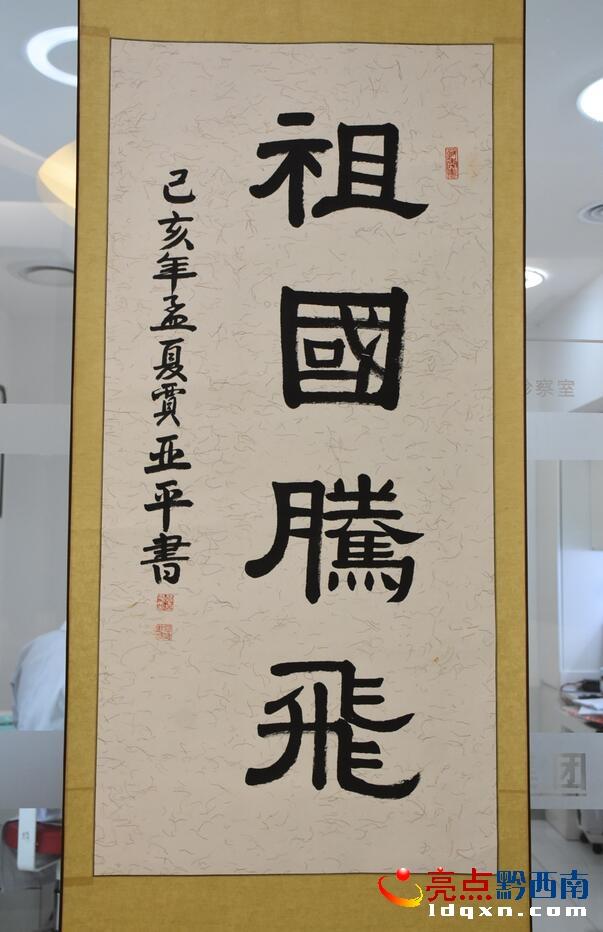 祖國騰飛
己亥年孟夏賈亚平書
察室
团
亮点黔西南
ldqxn.com